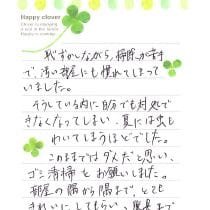 Happy clover
Clover is bringing
恥ずかしながら、掃除が苦手
で、汚い部屋にも慣れてしまって
いました。
そうしている内に自分でも対処で
きなくなってしまい、夏には虫も
わいてしまうほどでした。
このままではダメだと思い、
ゴミ清掃をお願いしました。
部屋の隅から隅まで、とても
きれいにしてもらい、